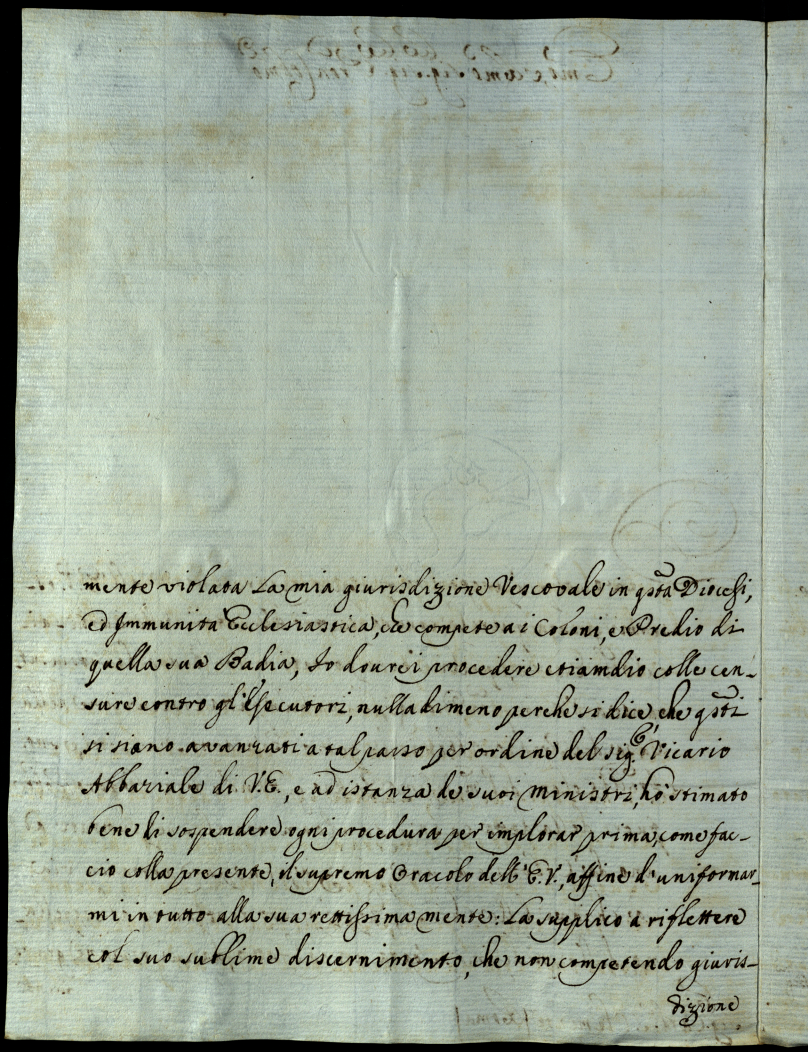 mente violata la mia giurisdizione Vescovale in qsta Diocesi,
ed Immunità Ecclesiastica, che compete a i Coloni, e Predio di
quella sua Badia, Io dourei procedere etiamdio colle cen-
sure contro gl'Esecutori, nulladimeno perche si dice, che qsti
si siano avanzati a tal passo per ordine del sig.r Vicario
Abbaziale di V.E., e ad istanza de suoi Ministri, hò stimato
bene di sospendere ogni procedura per implorar prima, come fac-
cio colla presente, il supremo Oracolo dell'E.V., affine d'uniformar-
mi in tutto alla sua rettissima mente: La supplico a riflettere
col suo sublime discernimento, che non competendo giuris-
dizione